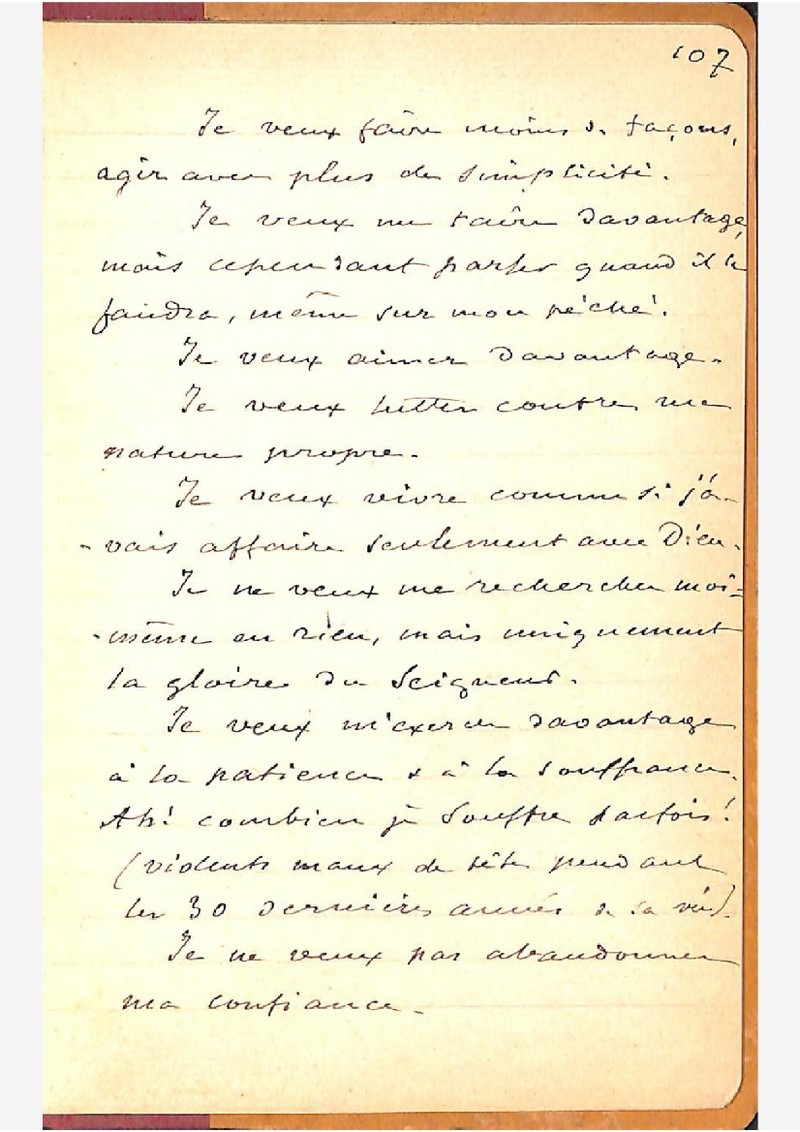 107
Je veux faire moins de façons,
agir avec plus de simplicité.
Je veux me taire davantage,
mais cependant parler quand il le
faudra, même sur mon péché.
Je veux aimer davantage.
Je veux lutter contre ma
nature propre.
Je veux vivre comme si j'a-
-vais affaire seulement avec Dieu.
Je ne veux me rechercher moi-
-même en rien, mais uniquement
la gloire du Seigneur.
Je veux m'exercer davantage
à la patience & à la souffrance.
Ah! combien je souffre parfois!
(violents maux de tête pendant
les 30 dernières années de sa vie).
Je ne veux pas abandonner
ma confiance.